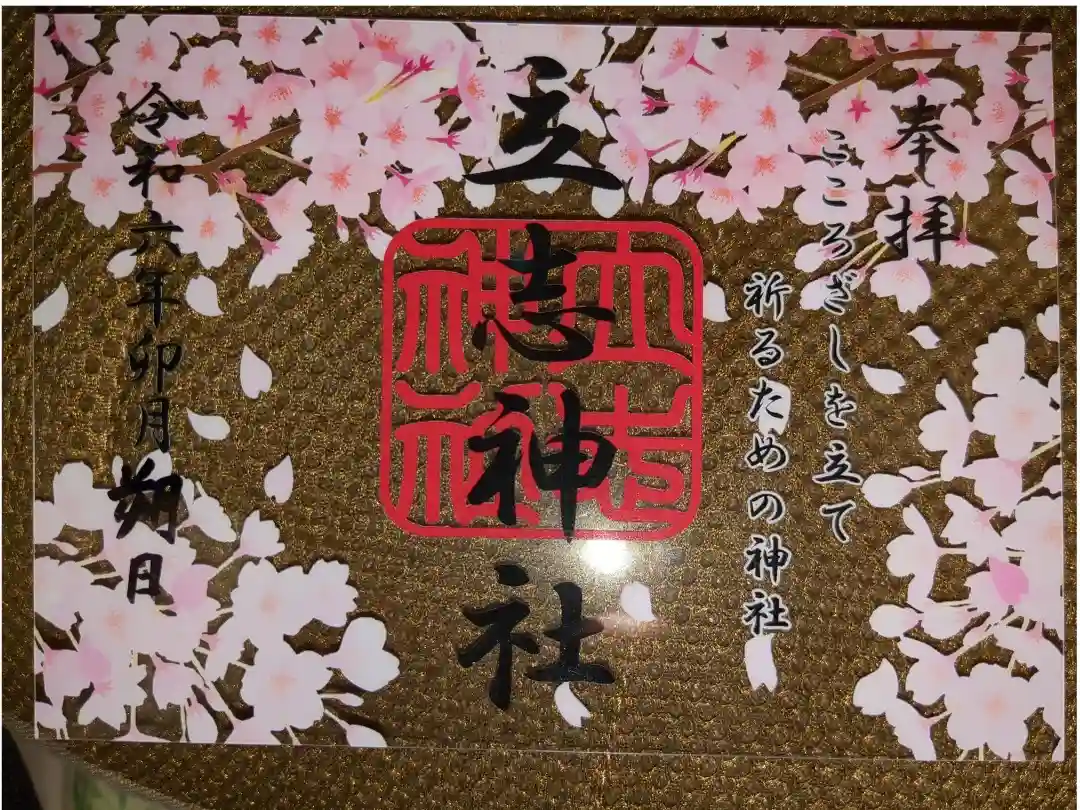 奉拝
こころざしを立て
祈るための神社
立志神社
立志神社
令和六年卯月朔日